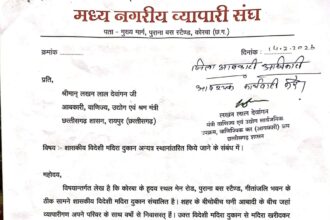 मध्य नगरीय व्यापारी संघ
पता - मुख्य मार्ग, पुराना बस स्टैण्ड, कोरबा (छ.ग.)
प्रति,
श्रीमान् लखन लाल देवांगन जी
आबकारी, वाणिज्य, उद्योग एवं श्रम मंत्री
छत्तीसगढ़ शासन, रायपुर (छत्तीसगढ़)
जिला आबकारी अधिकारी
आवश्यक कार्यवाही करें।
लखन लाल देवांगन
मंत्री वाणिज्य एवं उद्योग सार्वजनिक
उपक्रम, वाणिज्यिक कर (आबकारी) श्रम
छत्तीसगढ़ शासन
विषय:- शासकीय विदेशी मदिरा दुकान अन्यत्र स्थानांतरित किये जाने के संबंध में।
महोदय,
विषयान्तर्गत लेख है कि कोरबा के हृदय स्थल मेन रोड, पुराना बस स्टैण्ड, गीतांजलि भवन के
ठीक सामने शासकीय विदेशी मदिरा दुकान संचालित है। शहर के बीचोबीच घनी आबादी के बीच जहां
व्यापारीगण अपने परिवार के साथ वर्षों से निवासरत हैं। उक्त विदेशी मदिरा दुकान से मदिरा खरीदकर